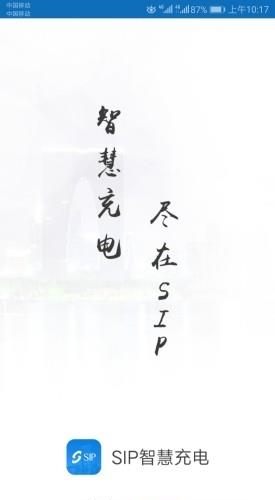 中国移动
中国移动
4G 4G 87% 上午10:17
智慧充电
尽在SIP
SIP
SIP智慧充电